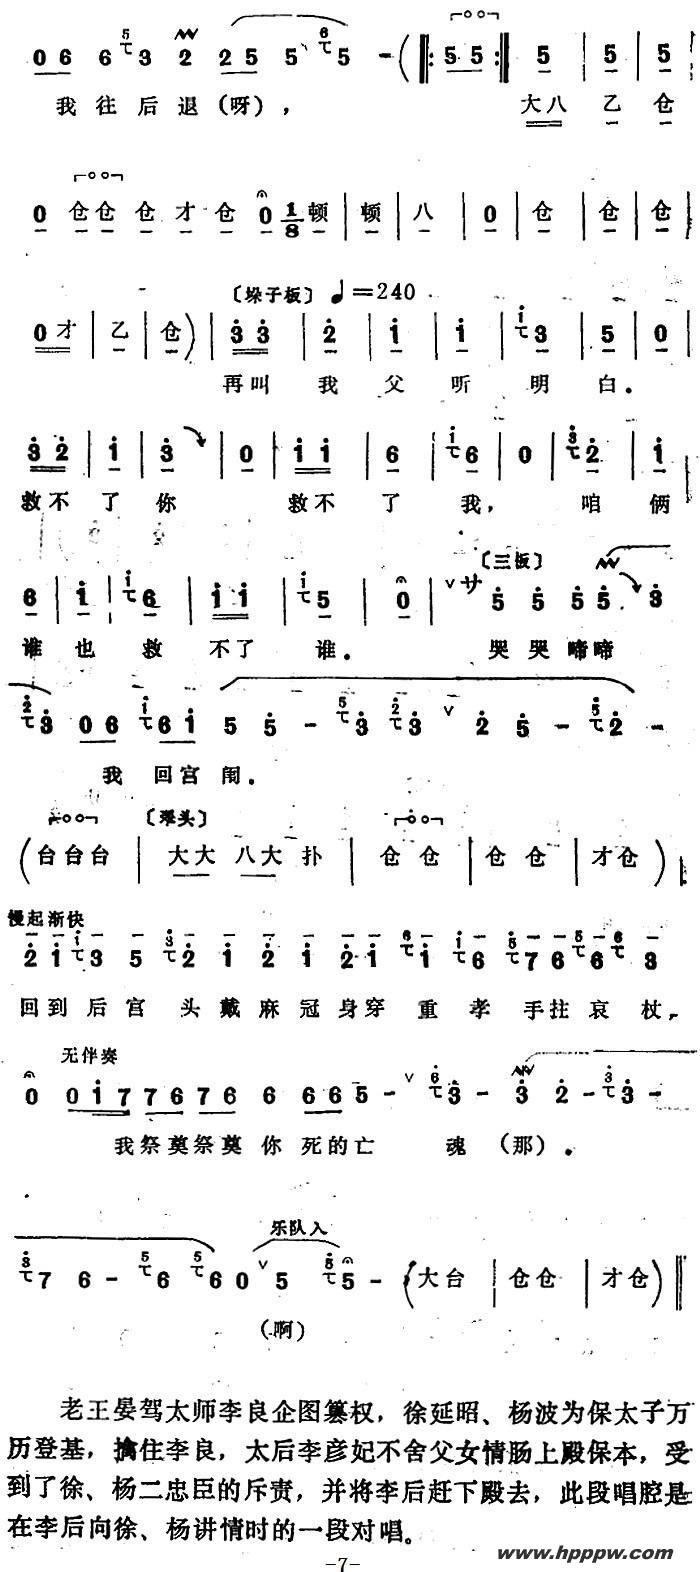 5 6
0 6 6 3 2 2 5 5 5 - ( 5 5 5 5 5
我 往 后 退 (呀)， 大八 乙 仓
0 仓仓 仓 才 仓 0 1/8 顿 | 顿 | 八 | 0 | 仓 | 仓 | 仓
〔垛子板〕 ♩=240
0才 | 乙 | 仓 ) | 3 3 | 2 | 1 | 1 | 3 | 5 | 0
再叫 我 父 听 明 白.
3 2 | 1 | 3 | 0 | 1 1 | 6 | 6 | 0 | 2 | 1
救不 了 你 救不 了 我, 咱 俩
〔三板〕
6 | 1 | 6 | 1 1 | 5 | 0 | サ 5 5 5 5 3
谁 也 救 不了 谁. 哭 哭 啼啼
3 0 6 6 1 5 5 - 3 3 2 5 - 2 -
我 回宫 闱.
( 台台台 | 大大 八大 扑 | 仓 仓 | 仓 仓 | 才仓 )
慢起渐快
2 1 3 5 2 1 2 1 2 1 1 6 7 6 6 3
回到 后 宫 头 戴 麻 冠 身穿 重 孝 手拄 哀 杖,
无伴奏
0 0 1 7 7 6 7 6 6 6 6 5 - 3 - 3 2 - 3 -
我祭奠祭奠 你 死的亡 魂 (那).
乐队入
7 6 - 6 6 0 5 5 - ( 大台 | 仓仓 | 才仓 )
(啊)
老王晏驾太师李良企图篡权，徐延昭、杨波为保太子万
历登基，擒住李良，太后李彦妃不舍父女情肠上殿保本，受
到了徐、杨二忠臣的斥责，并将李后赶下殿去，此段唱腔是
在李后向徐、杨讲情时的一段对唱。
-7-
www.hpppw.com